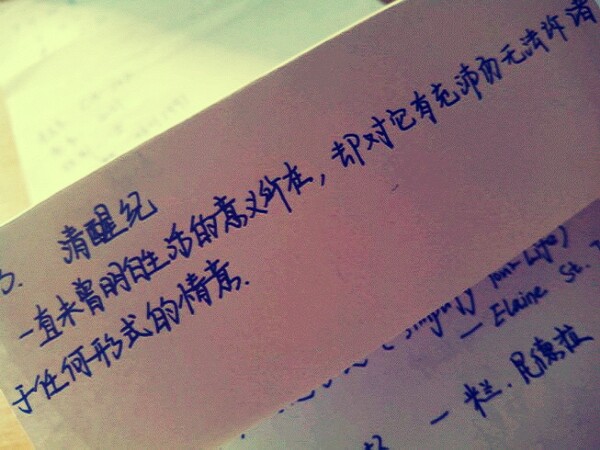 3. 清醒纪
一直未曾明白生活的意义所在，却对它有充沛而无法许诺
于任何形式的情意.
(Simplify your Life)
— Elaine St.
— 栏.尼德拉